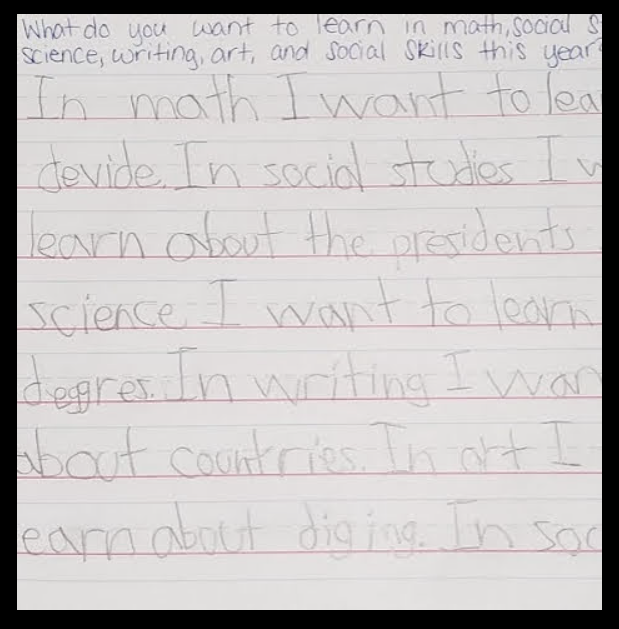 What do you want to learn in math, social s
science, writing, art, and social skills this year?
In math I want to lea
devide. In social studies I w
learn about the presidents
science I want to learn
degres. In writing I wan
about countries. In art I
earn about diging. In soc